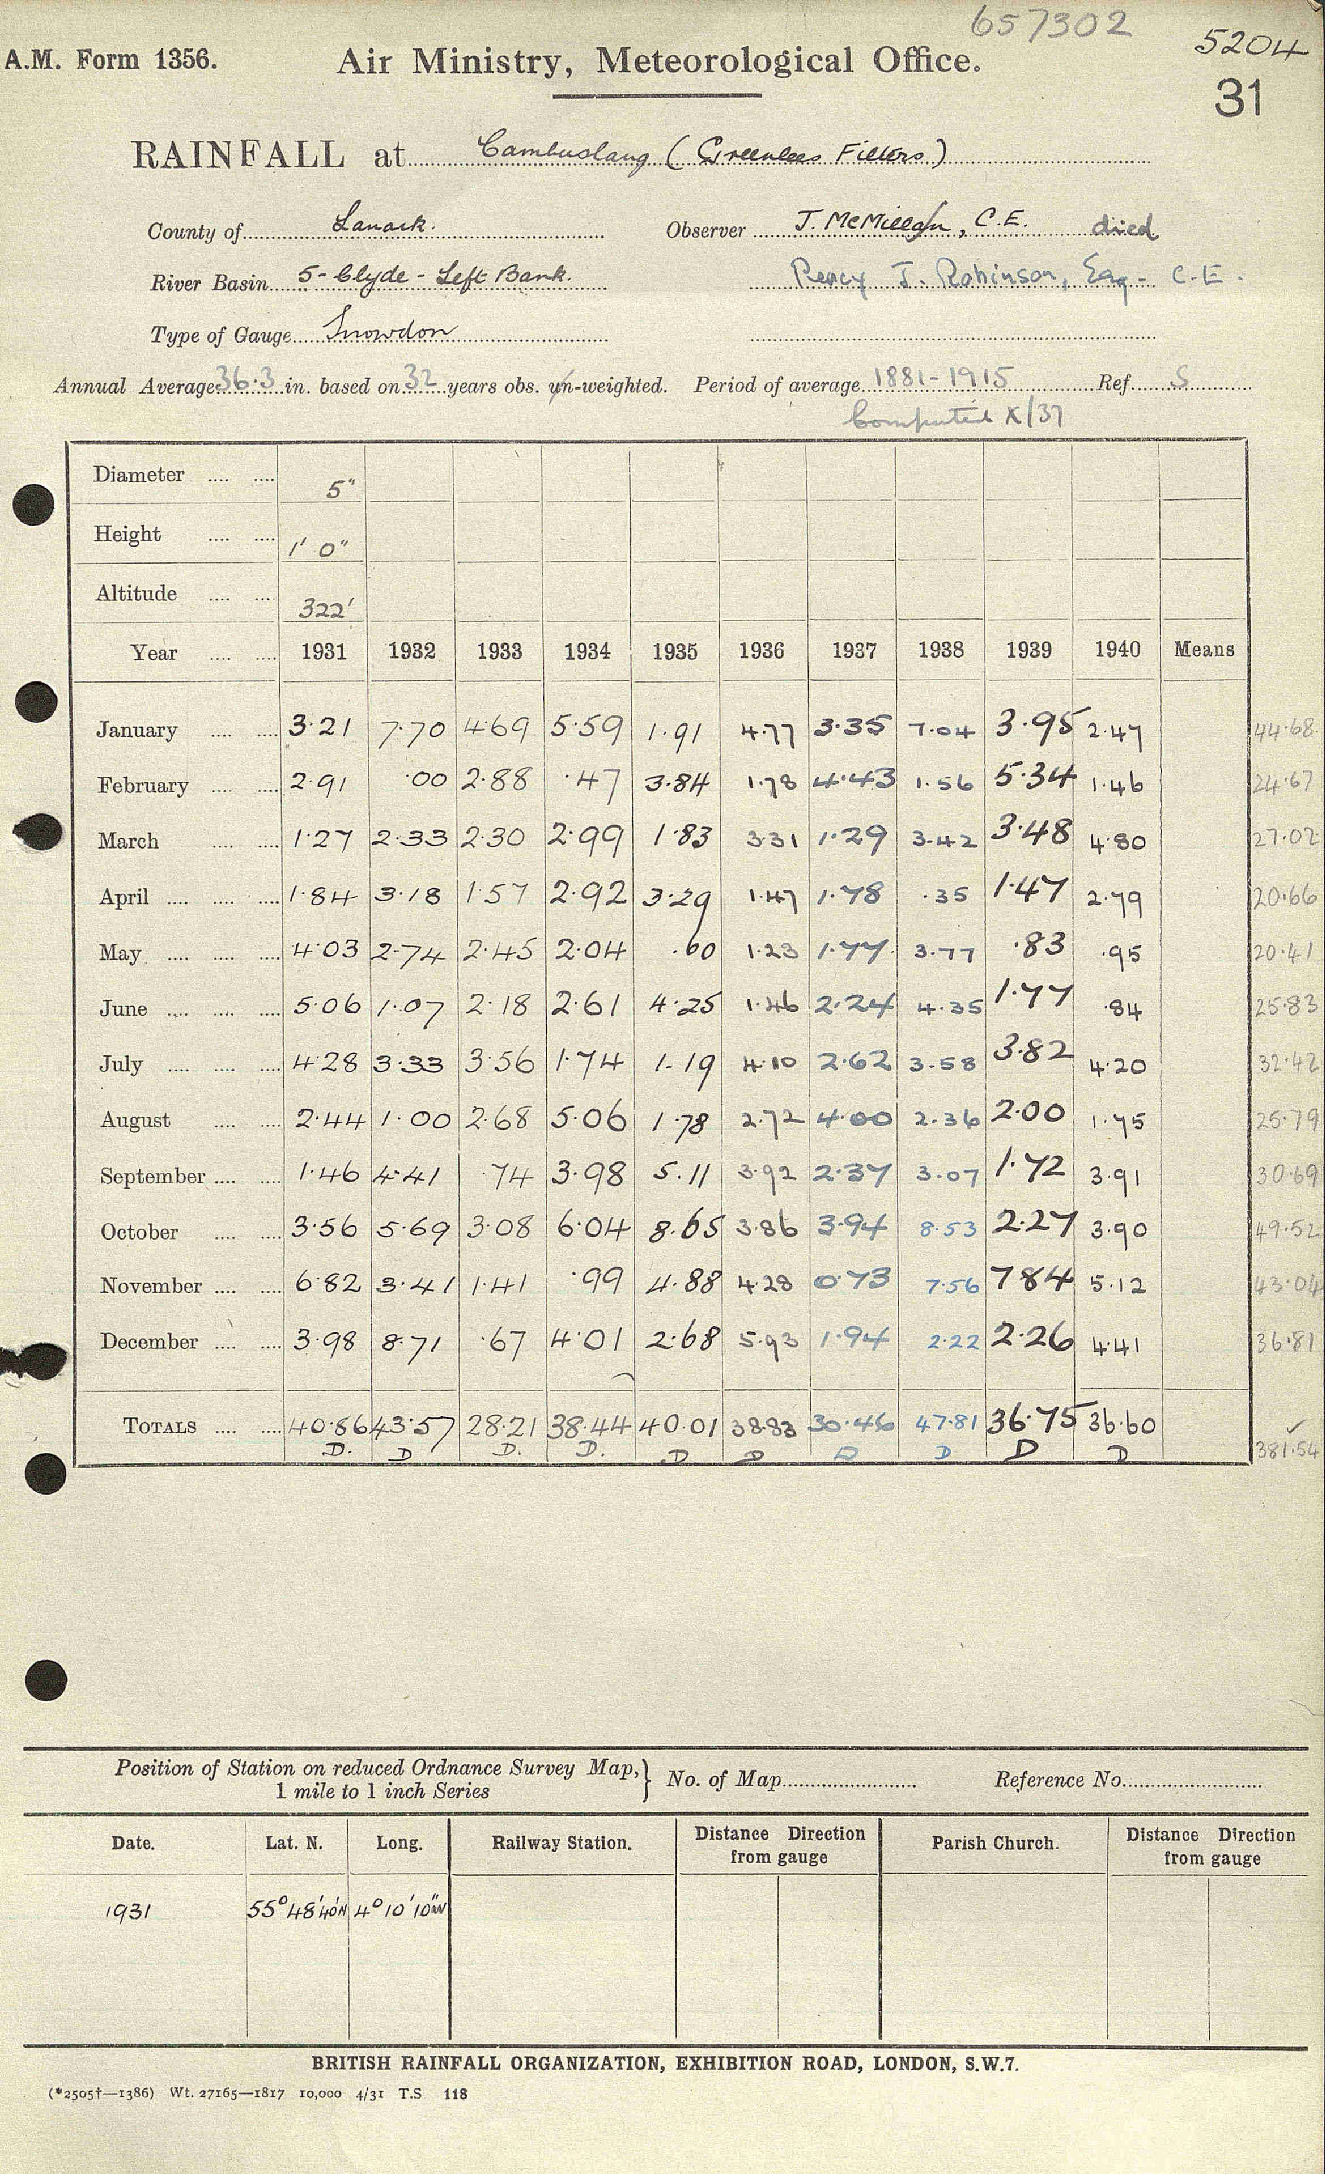 657302
5204
A.M. Form 1356. Air Ministry, Meteorological Office.
31
RAINFALL at Cambuslang (Greenlees Filters)
County of Lanark. Observer J. McMillan, C.E. died
River Basin 5 - Clyde - Left Bank. Percy J. Robinson, Esq - C.E.
Type of Gauge Snowdon
Annual Average 36.3 in. based on 32 years obs. un-weighted. Period of average 1881-1915 Ref. S
Computed X/37
Diameter .... .... 5"
Height .... .... 1' 0"
Altitude .... .... 322'
Year .... .... 1931 1932 1933 1934 1935 1936 1937 1938 1939 1940 Means
January .... .... 3.21 7.70 4.69 5.59 1.91 4.77 3.35 7.04 3.95 2.47 44.68
February .... .... 2.91 .00 2.88 .47 3.84 1.78 4.43 1.56 5.34 1.46 24.67
March .... .... 1.27 2.33 2.30 2.99 1.83 3.31 1.29 3.42 3.48 4.80 27.02
April .... .... .... 1.84 3.18 1.57 2.92 3.29 1.47 1.78 .35 1.47 2.79 20.66
May .... .... .... 4.03 2.74 2.45 2.04 .60 1.23 1.77 3.77 .83 .95 20.41
June .... .... .... 5.06 1.07 2.18 2.61 4.25 1.46 2.24 4.35 1.77 .84 25.83
July .... .... .... 4.28 3.33 3.56 1.74 1.19 4.10 2.62 3.58 3.82 4.20 32.42
August .... .... 2.44 1.00 2.68 5.06 1.78 2.72 4.00 2.36 2.00 1.75 25.79
September .... .... 1.46 4.41 .74 3.98 5.11 3.92 2.37 3.07 1.72 3.91 30.69
October .... .... 3.56 5.69 3.08 6.04 8.65 3.86 3.94 8.53 2.27 3.90 49.52
November .... .... 6.82 3.41 1.41 .99 4.88 4.28 0.73 7.56 7.84 5.12 43.04
December .... .... 3.98 8.71 .67 4.01 2.68 5.93 1.94 2.22 2.26 4.41 36.81
TOTALS .... .... 40.86 43.57 28.21 38.44 40.01 38.83 30.46 47.81 36.75 36.60
D. D D. D. D D D D D D 381.54
Position of Station on reduced Ordnance Survey Map, 1 mile to 1 inch Series } No. of Map Reference No.
Date. Lat. N. Long. Railway Station. Distance Direction from gauge Parish Church. Distance Direction from gauge
1931 55° 48' 40"N 4° 10' 10"W
BRITISH RAINFALL ORGANIZATION, EXHIBITION ROAD, LONDON, S.W.7.
(*2505†—1386) Wt. 27165—1817 10,000 4/31 T.S 118